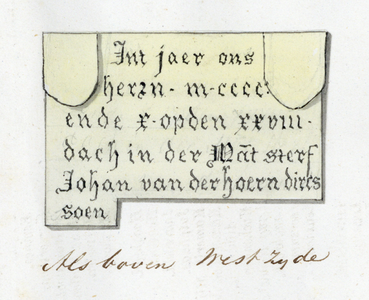 Int jaer ons
herrn · m · cccc ·
ende x · opden xxviii ·
dach in der Māt sterf
Johan van der hoern dircs
soen
Als boven West Zyde